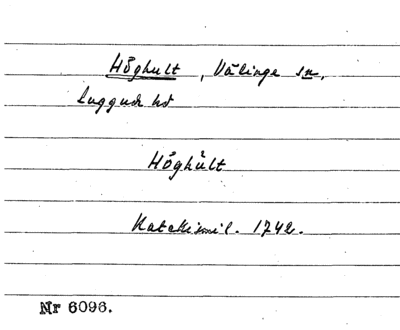 Höghult, Välinge sn,
Luggude hd
Höghült
Katekismil. 1742.
Nr 6096.